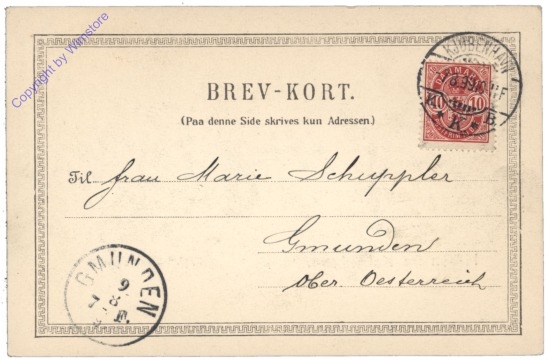 Copyright by Winstore
KJØBENHAVN
DANMARK
10 10
K. K. B
BREV-KORT.
(Paa denne Side skrives kun Adressen.)
Til Frau Marie Schuppler
Gmunden
Ober Oesterreich
GMUNDEN
9
8
F.